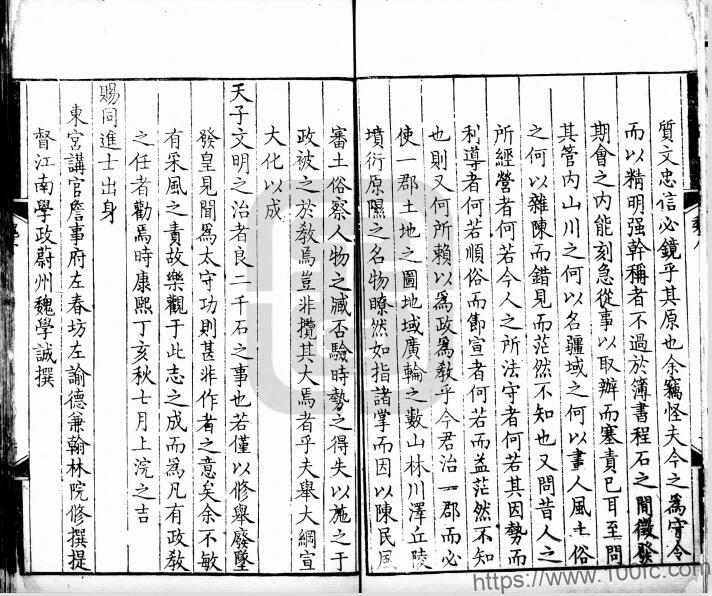 質文忠信必鏡乎其原也余竊怪夫今之為守令
而以精明强幹稱者不過於簿書程石之間徵發
期會之內能刻急從事以取辦而塞責已耳至問
其管內山川之何以名疆域之何以畫人風土俗
之何以雜陳而錯見而茫然不知也又問昔人之
所經營者何若今人之所法守者何若其因勢而
利導者何若順俗而節宣者何若而益茫然不知
也則又何所賴以為政為教乎今君治一郡而必
使一郡土地之圖地域廣輪之數山林川澤丘陵
墳衍原隰之名物瞭然如指諸掌而因以陳民風
審土俗察人物之臧否驗時勢之得失以施之于
政被之於教焉豈非攬其大焉者乎夫舉大綱宣
大化以成
天子文明之治者良二千石之事也若僅以修舉廢墜
發皇見聞為太守功則甚非作者之意矣余不敏
有采風之責故樂觀于此志之成而為凡有政教
之任者勸焉時康熙丁亥秋七月上浣之吉
賜同進士出身
東宮講官詹事府左春坊左諭德兼翰林院修撰提
督江南學政蔚州魏學誠撰
https://www.100fc.com